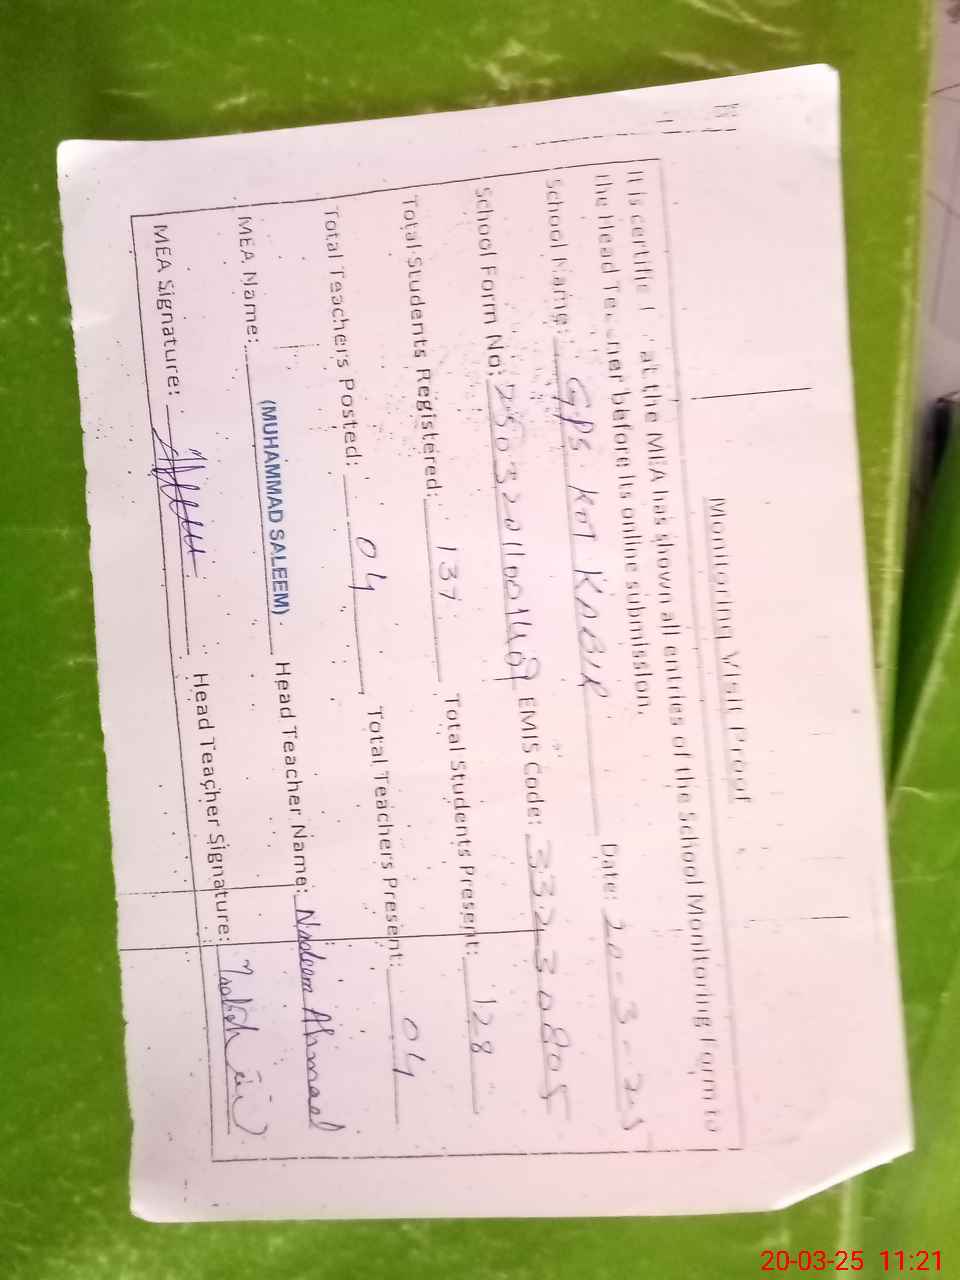 Monitoring Visit Proof
It is certified that the MEA has shown all entries of the School Monitoring Form to
the Head Teacher before its online submission.
School Name: GPS KOT KABIR Date: 20-3-25
School Form No: EMIS Code: 33230805
Total Students Registered: 137 Total Students Present: 128
Total Teachers Posted: 04 Total Teachers Present: 04
MEA Name: (MUHAMMAD SALEEM) Head Teacher Name: Nadeem Ahmad
MEA Signature: Head Teacher Signature:
20-03-25 11:21